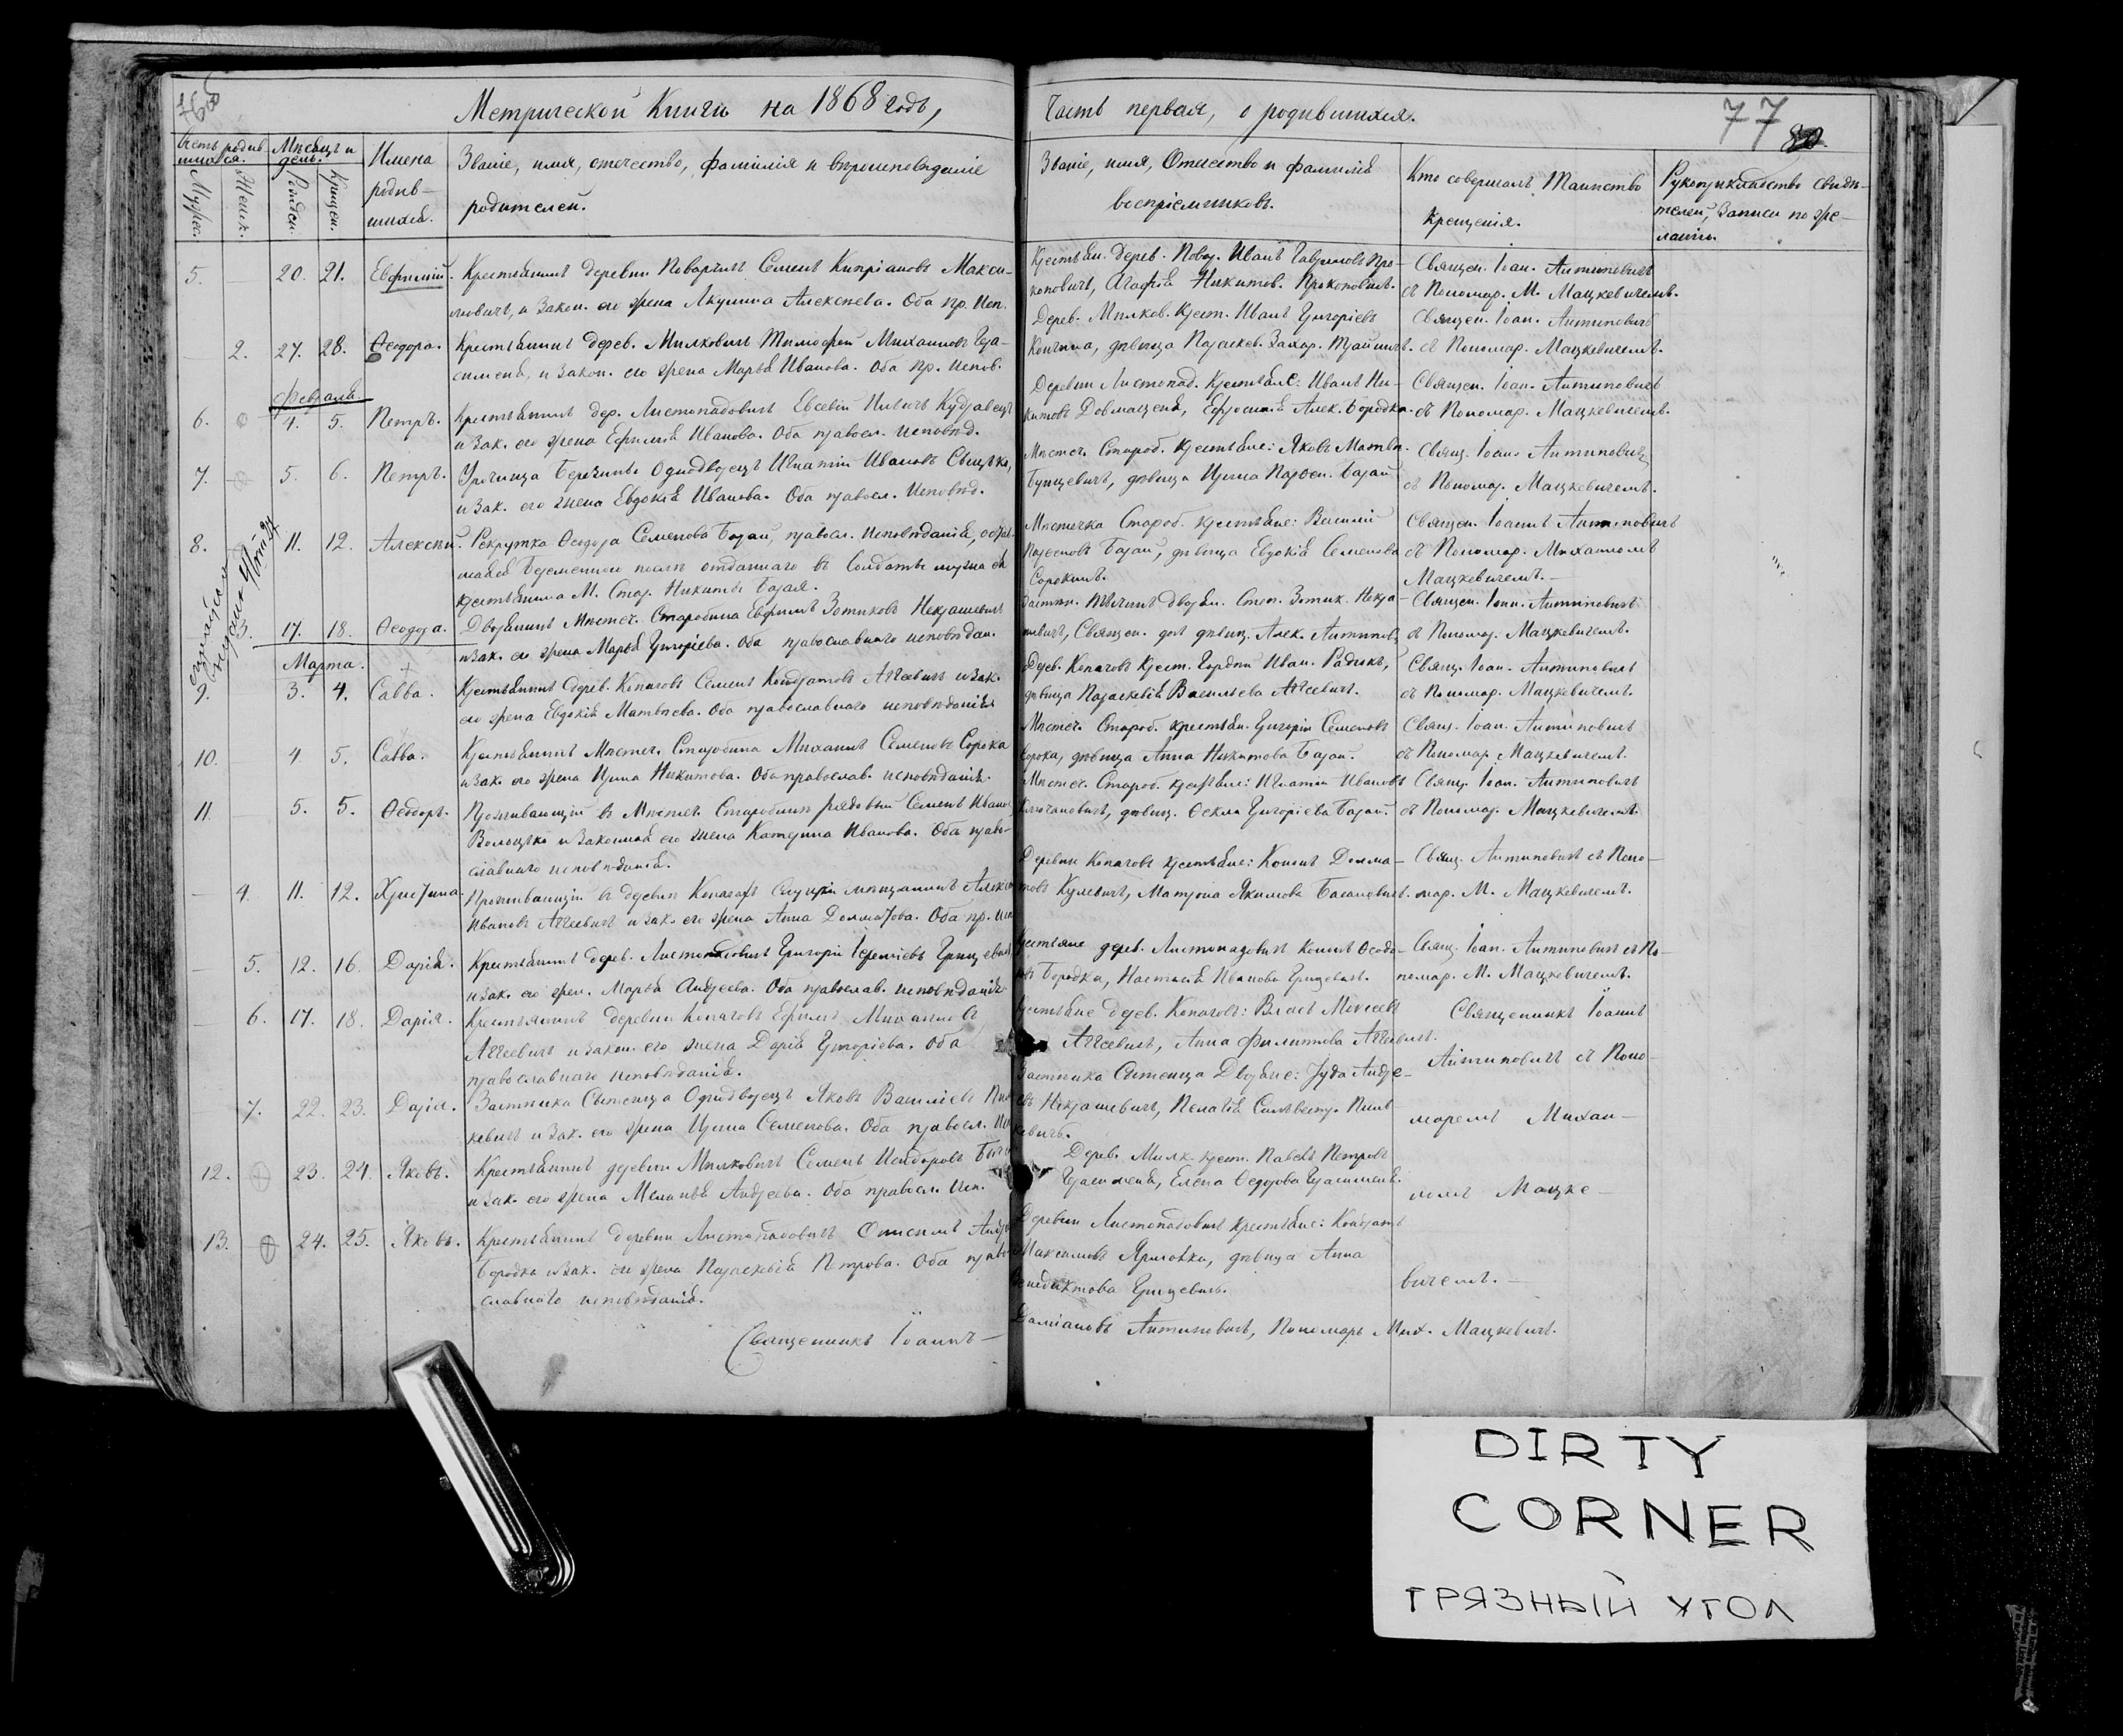 Метрической Книги на 1868 годъ,
Часть первая, о родившихся.
77
Месяцъ и день.
Мужес.
Женск.
Рожден.
Крещен.
Имена
родив-
шихся.
Званіе, имя, отчество, фамилія и вѣроисповѣданіе
родителей.
Званіе, имя, Отчество и фамилія
воспріемниковъ.
Кто совершалъ Таинство
Крещенія.
Рукоприкладство свидѣ-
телей, записи по же-
ланію.
5. 20. 21. Евфимій. Крестьянинъ деревни Поварчицъ Семенъ Кипріановъ Макси-
мовичъ, и Закон. его жена Акулина Алексѣева. Оба пр. Исп.
Крестьян. дерев. Повар. Иванъ Гавриловъ Про-
коповичъ, Агафія Никитов. Прокоповичъ.
Священ. Іоан. Антиповичъ
съ Пономар. М. Мацкевичемъ.
2. 27. 28. Ѳеодора. Крестьянинъ дерев. Милковичъ Тимофей Михаиловъ Гра-
и Закон. его жена Марья Иванова. Оба пр. Испов.
Дерев. Милков. Крест. Иванъ Григоріевъ
дѣвица Параскев. Захар.
Священ. Іоан. Антиповичъ
съ Пономар. Мацкевичемъ.
Февраля.
6. 4. 5. Петръ. Крестьянинъ дер. Листопадовичъ Евсевій Кудравецъ
и Зак. его жена Ефимія Иванова. Оба правосл. исповѣд.
Деревни Листопад. Крестьяне: Иванъ Ни-
китовъ Ефросинія Алек. Бородка.
Священ. Іоан. Антиповичъ
съ Пономар. Мацкевичемъ.
7. 5. 6. Петръ. Урочища Березины Однодворецъ Игнатій Ивановъ
и Зак. его жена Евдокія Иванова. Оба правосл. Исповѣд.
Местеч. Староб. Крестьяне: Яковъ Матвѣ.
дѣвица Ирина Парфен. Бараи
Свящ. Іоан. Антиповичъ
съ Пономар. Мацкевичемъ.
8. 11. 12. Алексѣй. Рекрутка Ѳеодора Семенова Бараи, правосл. Исповѣданія, остав-
шаяся беременною послѣ отданнаго въ Солдаты мужа ея
крестьянина М. Стар. Никиты Барая.
Местечка Староб. Крестьяне: Василій
Парфеновъ Бараи, дѣвица Евдокія Семенова
Сорокинъ.
Священ. Іоаннъ Антиповичъ
съ Пономар. Михаиломъ
Мацкевичемъ.
3. 17. 18. Ѳеодора. Дворянинъ Местеч. Старобина Евфимъ Зотиковъ Некрашевичъ
и Зак. его жена Марья Григоріева. Оба православнаго исповѣдан.
дворян. Степ. Зотик. Некра-
шевичъ, Священ. дочь дѣвиц. Алек. Антипов.
Священ. Іоан. Антиповичъ
съ Пономар. Мацкевичемъ.
Марта.
9. 3. 4. Савва. Крестьянинъ дерев. Копачовъ Семенъ Кондратовъ Аггеевичъ и Зак.
его жена Евдокія Матвѣева. Оба православнаго исповѣданія
Дерев. Копачовъ Крест. Гордѣй Иван. Радюкъ,
дѣвица Параскевія Васильева Аггеевичъ.
Свящ. Іоан. Антиповичъ
съ Пономар. Мацкевичемъ.
10. 4 5. Савва. Крестьянинъ Местеч. Старобина Михаилъ Семеновъ Сорока
и Зак. его жена Ирина Никитова. Оба православ. исповѣданія.
Местеч. Староб. крестьян. Григорій Семеновъ
Сорока, дѣвица Анна Никитова Бараи.
Свящ. Іоан. Антиповичъ
съ Пономар. Мацкевичемъ.
11 5. 5. Ѳеодоръ. Проживающій въ Местеч. Старобинѣ рядовый Семенъ Иванов
и Законная его жена Катерина Иванова. Оба право-
славнаго исповѣданія.
Местеч. Староб. крестьяне: Игнатій Ивановъ
дѣвиц. Ѳекла Григоріева Бараи.
Свящ. Іоан. Антиповичъ
съ Пономар. Мацкевичемъ.
4. 11. 12. Христина. Проживающій въ деревни Копачахъ Слуцкій мѣщанинъ Алексѣй
Ивановъ Аггеевичъ и Зак. его жена Анна Долматова. Оба пр. исп
Деревни Копачовъ крестьяне: Кононъ Долма-
товъ Кулевичъ, Матрона Якимова
Свящ. Антиповичъ съ Поно-
мар. М. Мацкевичемъ.
5. 12. 16. Дарія. Крестьянинъ дерев. Листопадовичъ Григорій Іереміевъ Грицевичъ
и Зак. его жен. Марья Андреева. Оба православ. исповѣданія
Крестьяне дерев. Листопадовичъ Кононъ Ѳеодо-
ровъ Бородка, Настасія Иванова Грицевичъ.
Свящ. Іоан. Антиповичъ съ По-
номар. М. Мацкевичемъ.
6. 17. 18. Дарія. Крестьянинъ деревни Копачовъ Ефимъ Михаиловъ
Аггеевичъ и Закон. его жена Дарія Григоріева. Оба
православнаго исповѣданія.
Крестьяне дерев. Копачовъ: Власъ Моисеевъ
Аггеевичъ, Анна Филиппова Аггеевичъ.
Священникъ Іоаннъ
Антиповичъ съ Поно-
7. 22. 23. Дарія. Застѣнка Сытеница Однодворецъ Яковъ Василіевъ Пин
кевичъ и Зак. его жена Ирина Семенова. Оба правосл. Ис
Застѣнка Сытеница Дворяне: Іуда Андре-
евъ Некрашевичъ, Пелагія Сильвестр. Пин
кевичъ.
маремъ Михаи-
12. 23. 24. Яковъ. Крестьянинъ деревни Милковичъ Семенъ Исидоровъ
и Зак. его жена Меланія Андреева. Оба правосл. Исп.
Дерев. Милк. крест. Павелъ Петровъ
Герасименя, Елена Ѳедорова Герасименя.
ломъ Мацке-
13. 24. 25. Яковъ. Крестьянинъ деревни Листопадовичъ Онисимъ Андр
Бородка и Зак. его жена Параскевія Петрова. Оба право
славнаго исповѣданія.
Деревни Листопадовичъ крестьяне: Кондратъ
Максимовъ Ярмолка, дѣвица Анна
Венедиктова Грицевичъ.
вичемъ.
Священникъ Іоаннъ
Даміановъ Антиповичъ, Пономарь Мих. Мацкевичъ.
DIRTY
CORNER
ГРЯЗНЫЙ УГОЛ